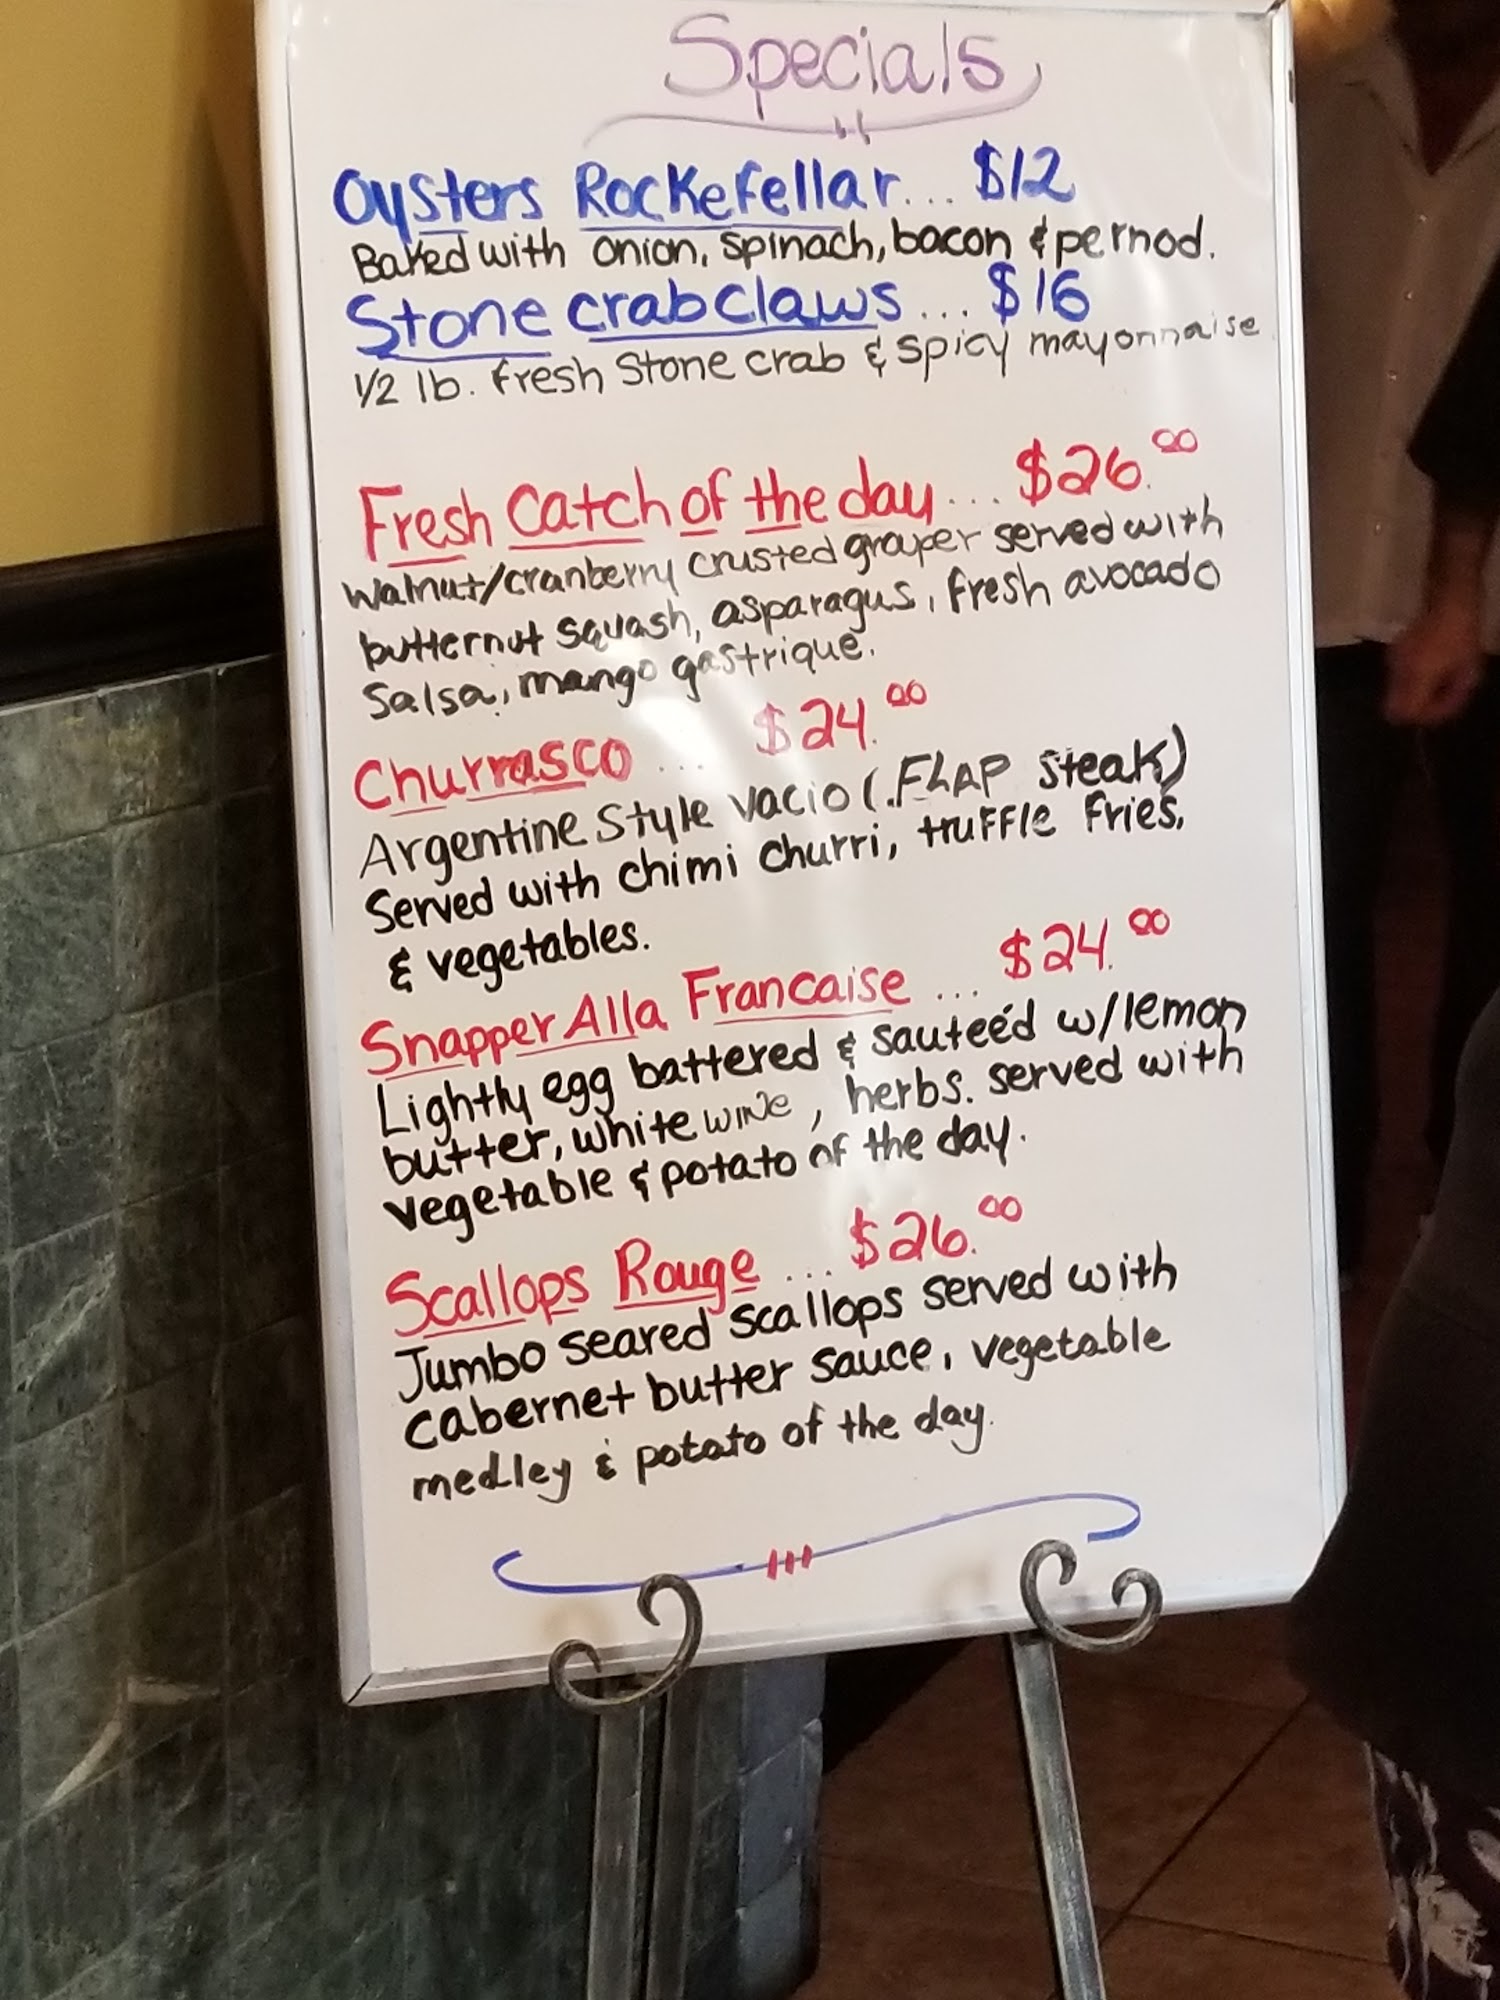 Specials
Oysters Rockefellar... $12
Baked with onion, spinach, bacon & pernod.
Stone crab claws... $16
1/2 lb. fresh stone crab & spicy mayonnaise
Fresh Catch of the day... $26.00
Walnut/cranberry crusted grouper served with
butternut squash, asparagus, fresh avocado
Salsa, mango gastrique.
Churrasco... $24.00
Argentine Style vacio (.FLAP steak)
Served with chimi churri, truffle fries,
& vegetables.
Snapper Alla Francaise... $24.00
Lightly egg battered & sauteéd w/lemon
butter, white wine, herbs. served with
vegetable & potato of the day.
Scallops Rouge... $26.00
Jumbo seared scallops served with
cabernet butter sauce, vegetable
medley & potato of the day.